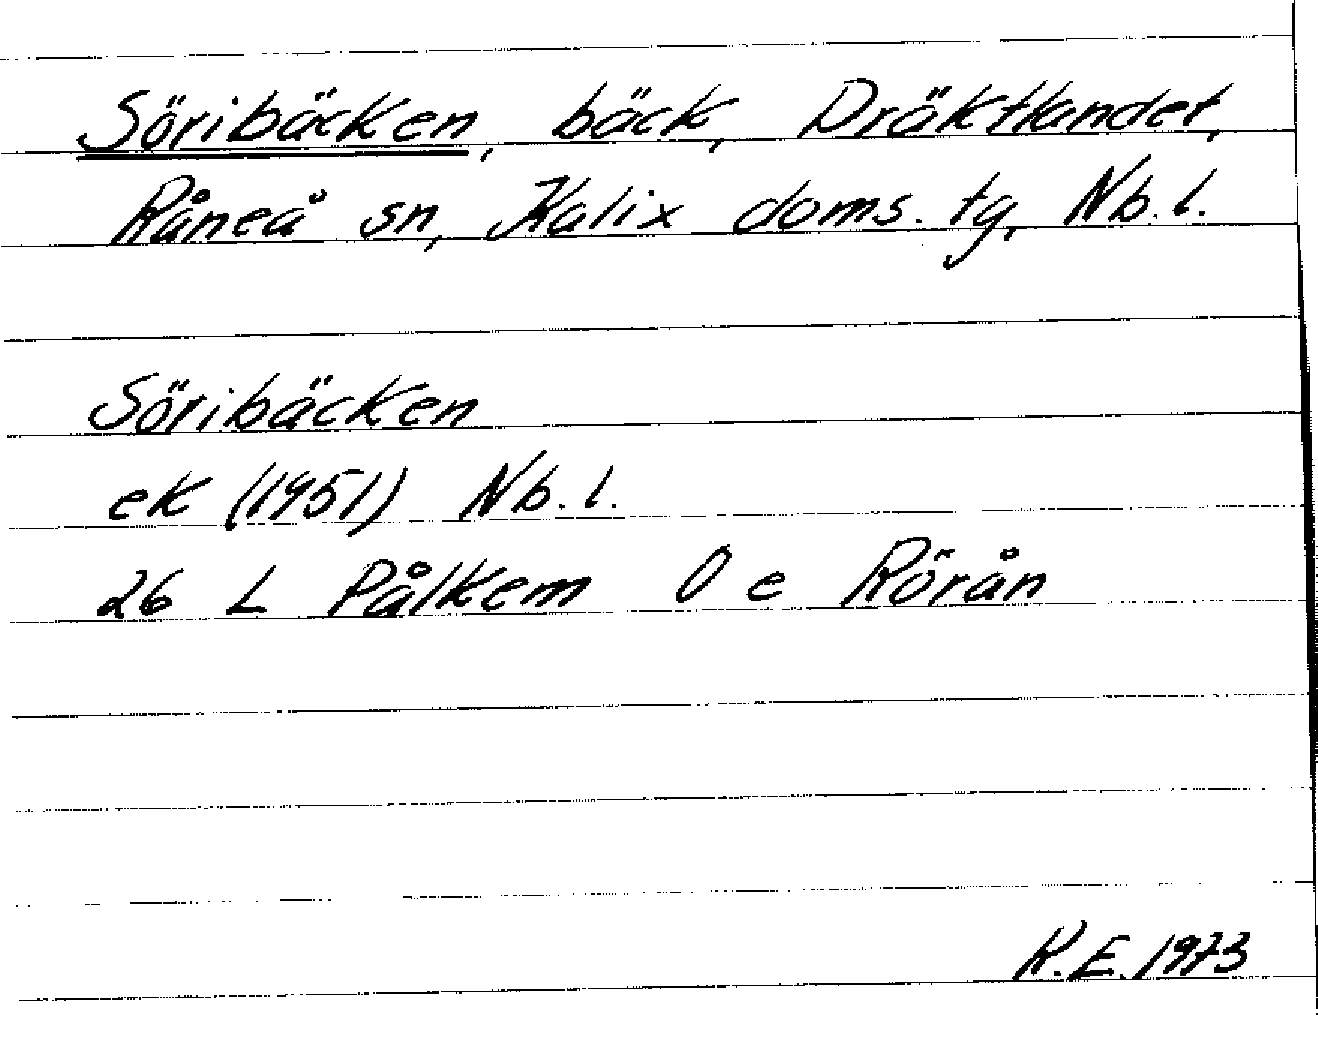 Söribäcken, bäck, Dräktlandet,
Råneå sn, Kalix doms. tg, Nb. l.
Söribäcken
ek (1951) Nb. l.
26 L Pålkem O e Rörån
K.E. 1973